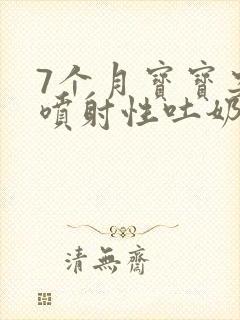 7个月寶寶
噴射性吐奶
清無齋